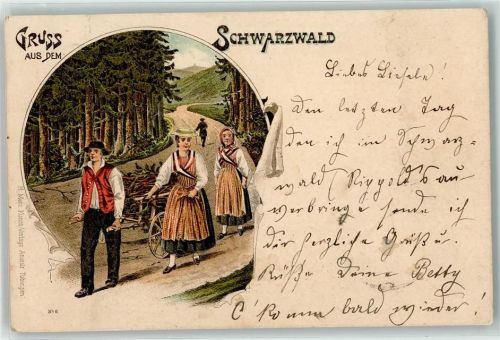 GRUSS
AUS DEM
SCHWARZWALD
Liebes Liesele!
Den letzten Tag
den ich im Schwarz-
wald (Rippoldsau
verbringe sende ich
dir herzliche Grüße u.
Küße Deine Betty
O komm bald wieder!
No 6